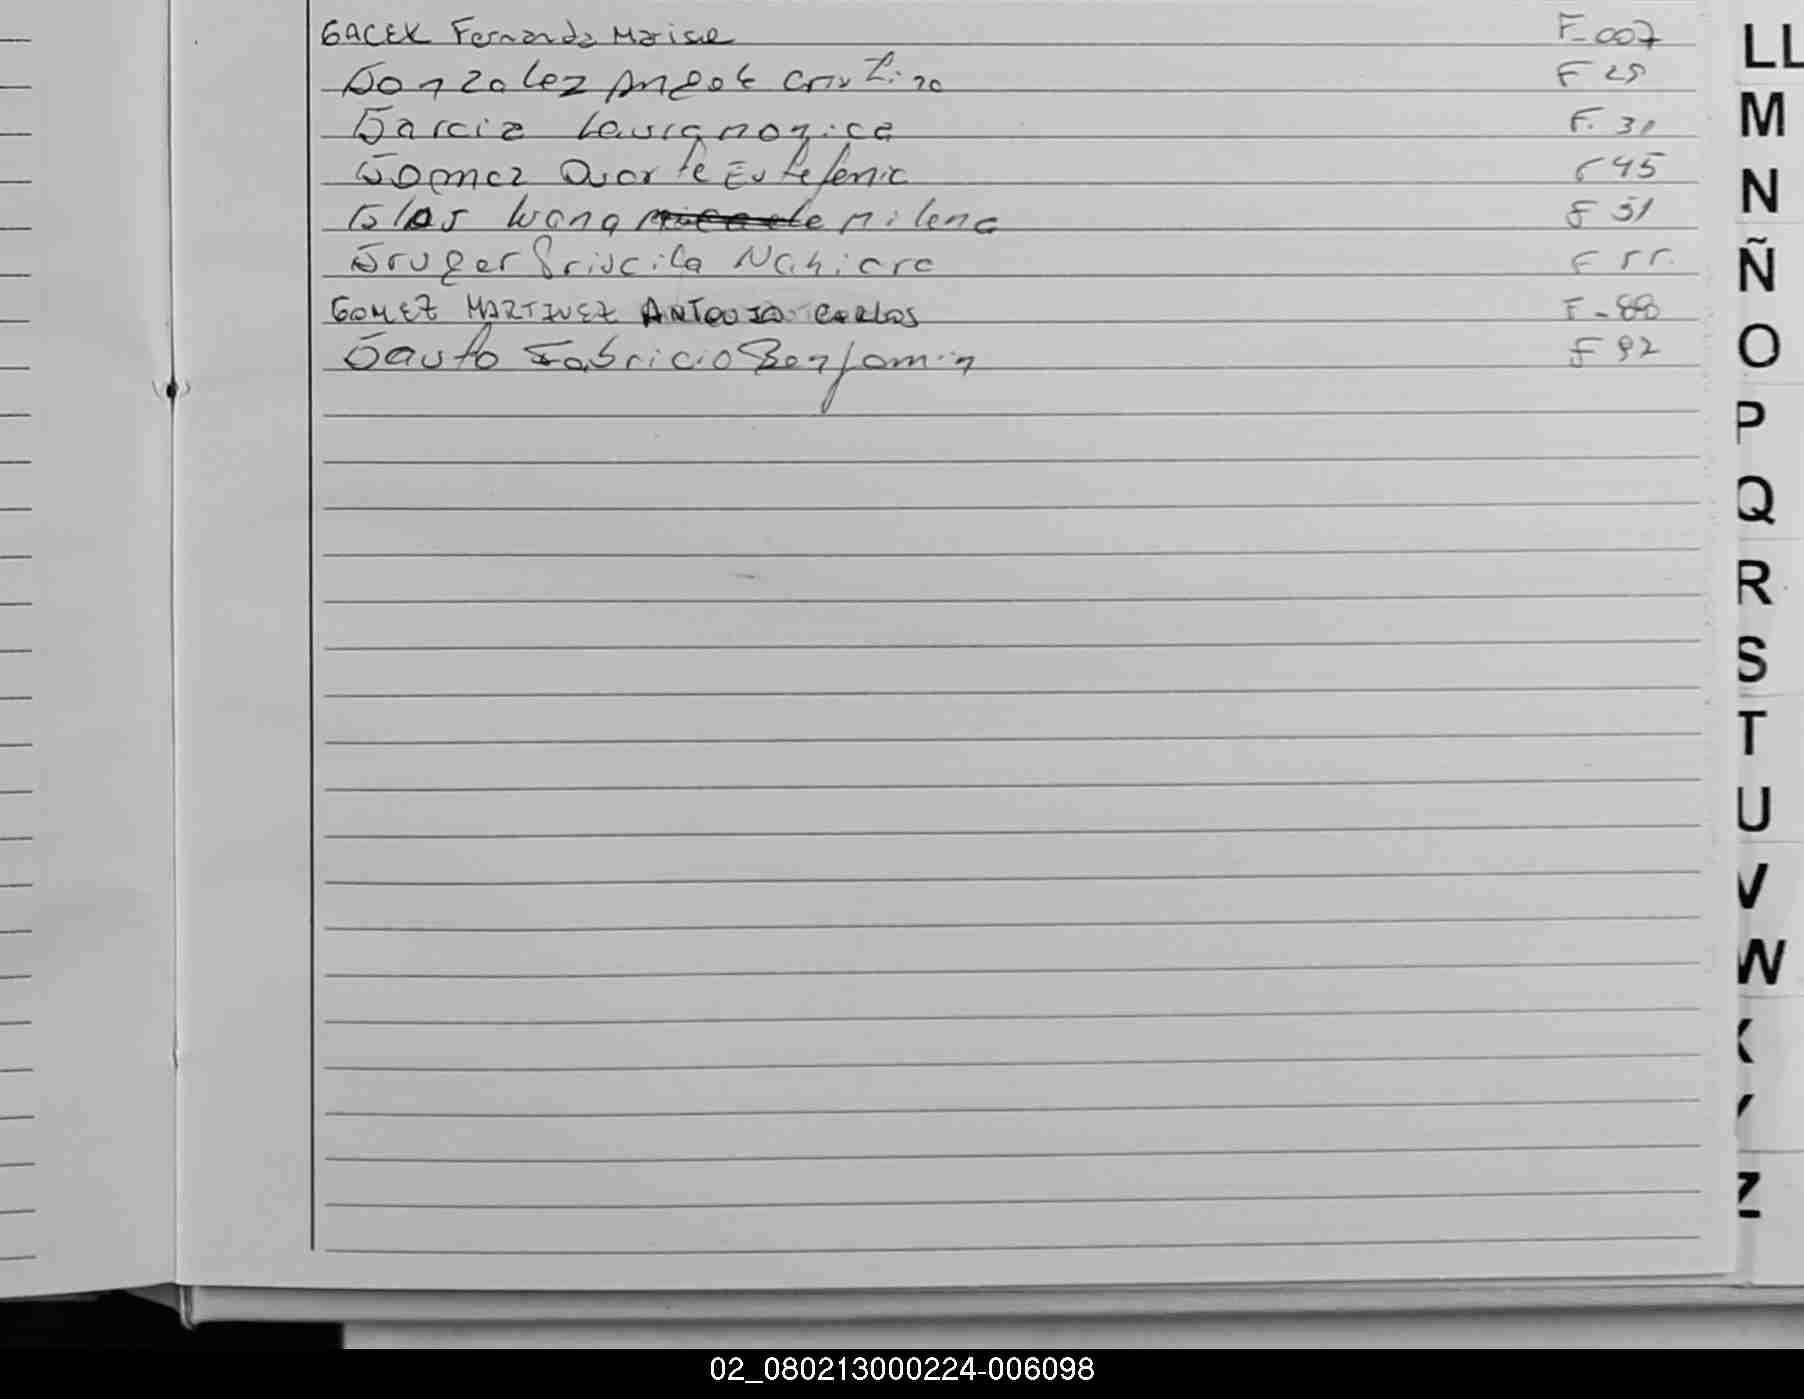 GACEK Fernanda Marisel F-007
Gonzalez Angela Cristina F 25
Garcia Laura Monica F. 31
Gomez Duarte Estefania F 45
Glas Luana Micaela Milena F 51
Gruger Priscila Nahiara F 55
GOMEZ MARTINEZ ANTONIO CARLOS F-88
Gauto Fabricio Benjamin F 92
LL
M
N
Ñ
O
P
Q
R
S
T
U
V
W
X
Y
Z
02_080213000224-006098